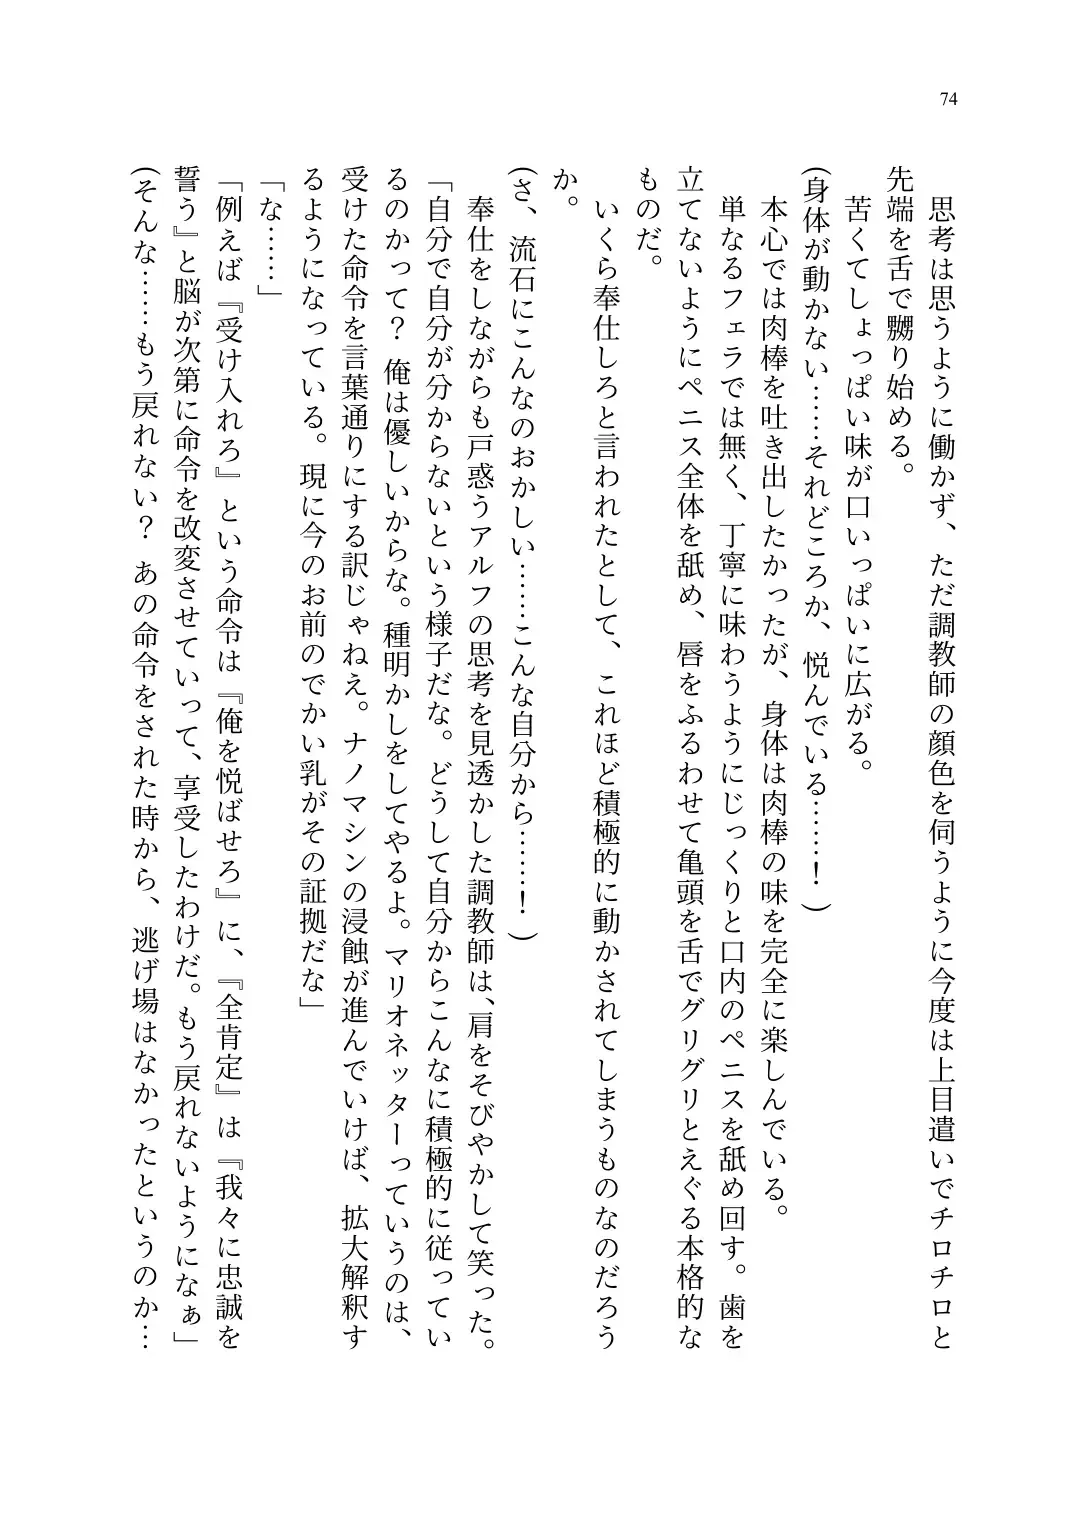 74
思考は思うように働かず、ただ調教師の顔色を伺うように今度は上目遣いでチロチロと
先端を舌で嬲り始める。
苦くてしょっぱい味が口いっぱいに広がる。
(身体が動かない……それどころか、悦んでいる……！)
本心では肉棒を吐き出したかったが、身体は肉棒の味を完全に楽しんでいる。
単なるフェラでは無く、丁寧に味わうようにじっくりと口内のペニスを舐め回す。歯を
立てないようにペニス全体を舐め、唇をふるわせて亀頭を舌でグリグリとえぐる本格的な
ものだ。
いくら奉仕しろと言われたとして、これほど積極的に動かされてしまうものなのだろう
か。
(さ、流石にこんなのおかしい……こんな自分から……！)
奉仕をしながらも戸惑うアルフの思考を見透かした調教師は、肩をそびやかして笑った。
「自分で自分が分からないという様子だな。どうして自分からこんなに積極的に従ってい
るのかって？　俺は優しいからな。種明かしをしてやるよ。マリオネッターっていうのは、
受けた命令を言葉通りにする訳じゃねえ。ナノマシンの浸蝕が進んでいけば、拡大解釈す
るようになっている。現に今のお前のでかい乳がその証拠だな」
「な……」
「例えば『受け入れろ』という命令は『俺を悦ばせろ』に、『全肯定』は『我々に忠誠を
誓う』と脳が次第に命令を改変させていって、享受したわけだ。もう戻れないようになぁ」
(そんな……もう戻れない？　あの命令をされた時から、逃げ場はなかったというのか…